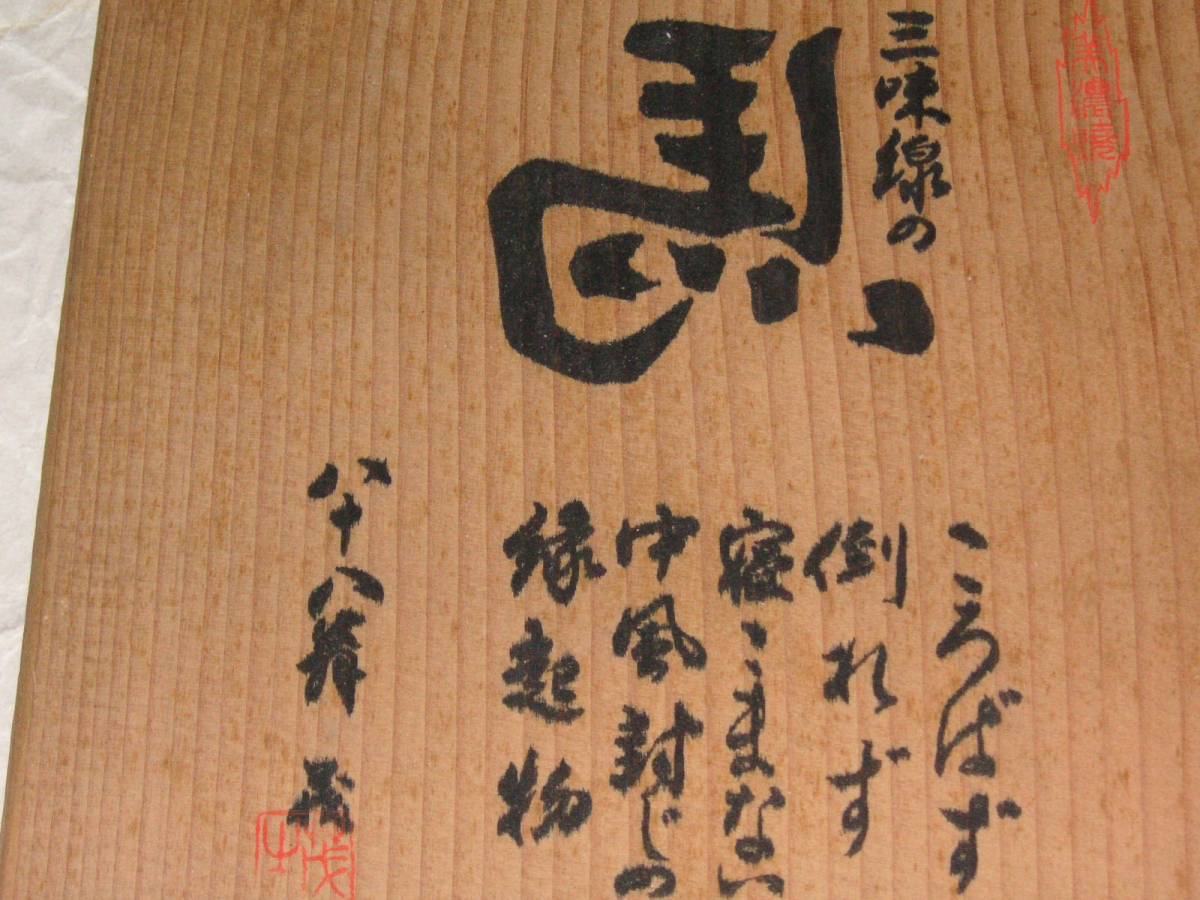 美濃焼
三味線の
馬
ころばず
倒れず
寝こまない
中風封じの
縁起物
八十八翁 茂